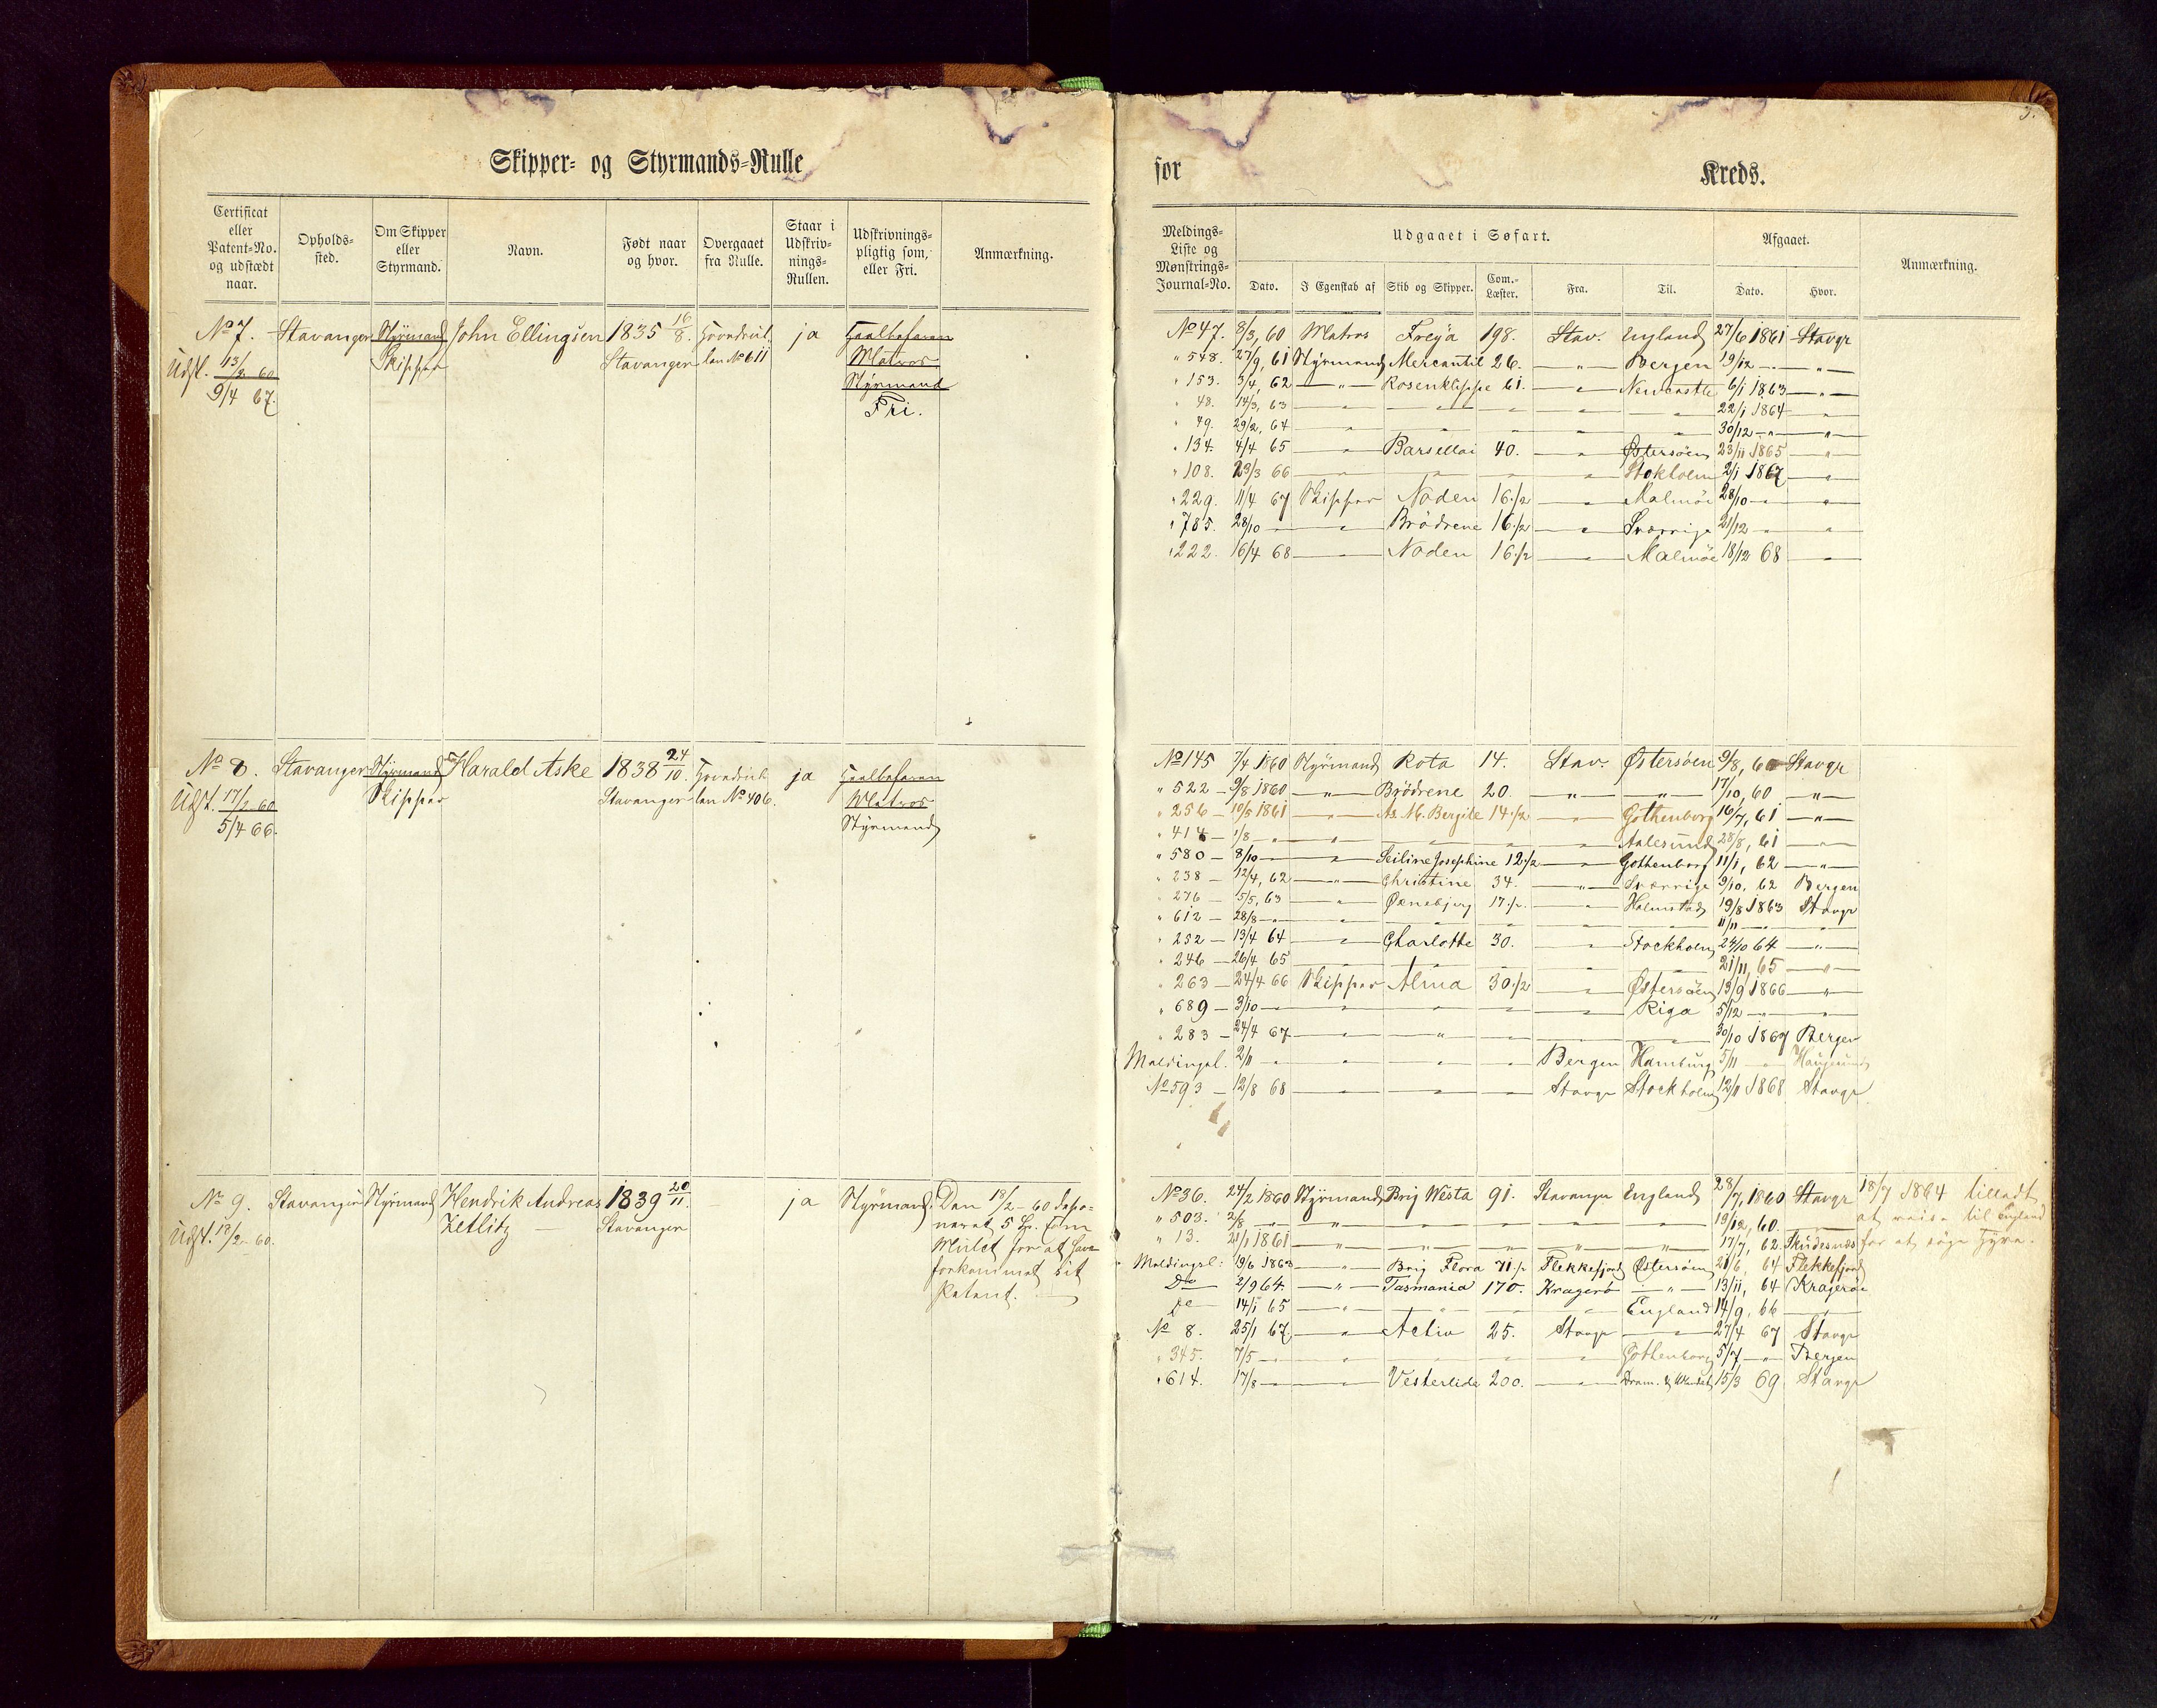 Skipper- og Styrmands-Rulle
Certificat eller Patent-No. og udstædt naar.
Opholds-sted.
Om Skipper eller Styrmand.
Navn.
Født naar og hvor.
Overgaaet fra Rulle.
Staar i Udskriv-nings-Rullen.
Udskrivnings-pligtig som, eller Fri.
Anmærkning.
No 7. Stavanger Styrmand John Ellingsen 1835 16/8. Hovedrul- ja
Udst. 13/2 60 Skipper Stavanger len No 611 Matros
9/4 67. Styrmand
Fri.
No 8. Stavanger Styrmand Harald Aske 1838 24/10. Hovedrul- ja
Udst. 17/2 60 Skipper Stavanger len No 406. Matros
5/4 66. Styrmand
No 9. Stavanger Styrmand Hendrik Andreas 1839 20/11. ja Styrmand. Den 18/2 - 60 depo-
Udst. 18/2 - 60. Zetlitz Stavanger neret 5 som
Mulct for at have
forkommet sit
Patent.
for Kreds.
3.
Meldings-Liste og Mønstrings-Journal-No.
Udgaaet i Søfart.
Dato.
I Egenskab af
Skib og Skipper.
Com.-Læster.
Fra.
Til.
Afgaaet.
Dato.
Hvor.
Anmærkning.
No 47. 8/3, 60 Matros Freya 198. Stav. England 27/6 1861 Stavgr
" 548. 27/9, 61 Styrmand Mercantil 26. — " — Bergen 19/12 — " — — " —
" 153. 3/4, 62 — " — Rosenklippe 61. — " — Newcastle 6/1 1863 — " —
" 48. 14/3, 63 — " — — " — — " — — " — — " — 22/1 1864 — " —
" 49. 29/2, 64 — " — — " — — " — — " — — " — 30/12 — " — — " —
" 134. 4/4 65 — " — 40. — " — Østersøen 23/11 1865 — " —
" 108. 23/3 66 — " — — " — — " — — " — Stokholm 2/1 1867 — " —
" 229. 11/4 67 Skipper Noden 16 1/2 — " — Malmöe 28/10 — " — — " —
" 785. 28/10 — " — — " — Brödrene 16 1/2 — " — Sverrige 21/12 — " — — " —
" 222. 16/4 68 — " — Noden 16 1/2 — " — Malmöe 18/12 68 — " —
No 145 7/4 1860 Styrmand Rota 14. Stav. Østersøen 9/8, 60 Stavgr
" 522 — 9/8 1860 — " — Brödrene 20. — " — — " — 17/10, 60 — " —
" 256 — 10/5 1861 — " — As. M. Bergite 14 1/2 — " — Gothenborg 16/7, 61 — " —
" 414 — 1/8 — " — — " — — " — — " — — " — Aalesund 28/8, 61 — " —
" 580 — 8/10 — " — — " — Seiline Josephine 12 1/2 — " — Gothenborg 11/1, 62 — " —
" 238 — 12/4, 62 — " — Christine 34. — " — Sverrige 9/10, 62 Bergen
" 276 — 5/5, 63 — " — Ørnebjerg 17 1/2 — " — Halmstad 19/8 1863 Stavgr
" 612 — 28/8 — " — — " — — " — — " — — " — — " — 11/11 — " — — " —
" 232 — 13/4 64 — " — Charlotte 30. — " — Stockholm 24/10 64 — " —
" 246 — 26/4 65 — " — — " — — " — — " — — " — 21/11, 65 — " —
" 263 — 24/4 66 Skipper Alma 30 1/2 — " — Østersøen 13/9 1866 — " —
" 689 — 3/10 — " — — " — — " — — " — — " — Riga 5/12 — " — — " —
" 283 — 24/4 67 — " — — " — — " — — " — — " — 30/10 1867 Bergen
Meldingsl. 2/11 — " — — " — — " — — " — Bergen Hamburg 5/11 — " — Haugesund
No 593 — 12/8 68 — " — — " — — " — Stavgr Stockholm 12/11 1868 Stavgr
No 36. 24/2 1860 Styrmand Brig Westa 91. Stavanger England 28/7, 1860 Stavgr 18/7 1864 tilladt
" 503. 2/8 — " — — " — — " — — " — — " — — " — 19/12, 60. — " — at reise til England
" 13. 21/1 1861 — " — — " — — " — — " — — " — 17/7, 62. Skudesnæs for at söge Hyre.
Meldingsl: 19/6 1863 — " — Brig Flora 71 1/2 Flekkefjord Østersøen 21/6, 64 Flekkefjord
Do 2/9 64. — " — Tasmania 170. Kragerö — " — 13/11, 64 Kragerøe
Do 14/1 65 — " — — " — — " — — " — England 14/9, 66 — " —
No 8. 25/1 67. — " — Activ 25. Stavgr — " — 27/4 67 Stavgr
" 345. 7/5 — " — — " — — " — — " — — " — Gothenborg 5/7 — " — Bergen
" 614. 17/8 — " — — " — Vesterlide 200. — " — Dram. 15/3 69 Stavgr